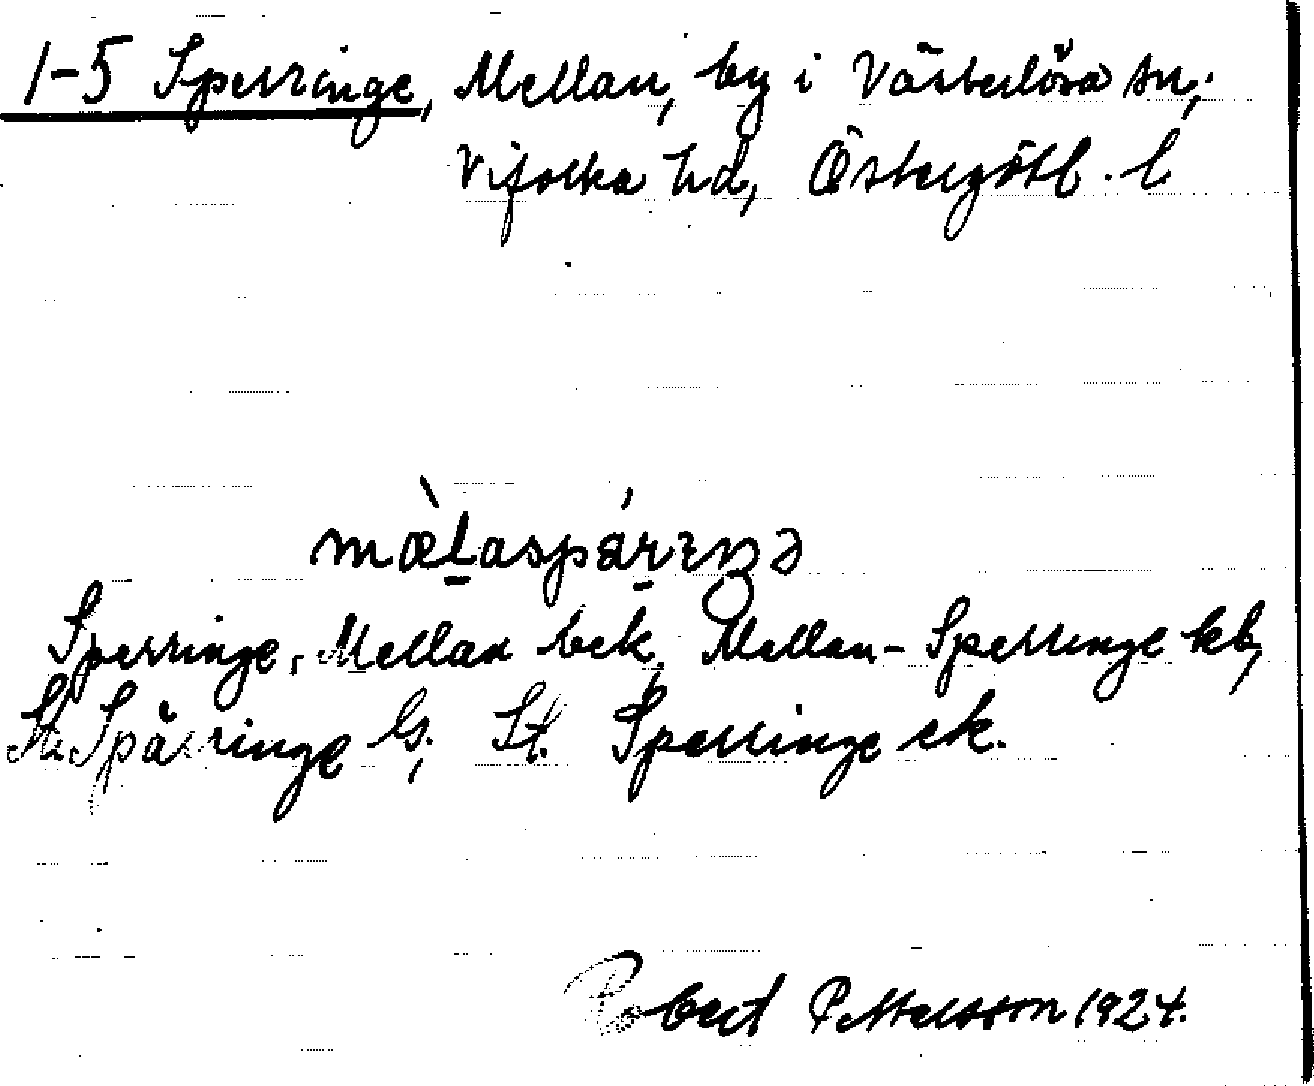 1-5 Sperringe, Mellan, by i Västerlösa sn,
Vifolka hd, Östergötl. l
mæ̀laspárɪŋə
Sperringe, Mellan bek, Mellan-Sperringe kb,
St. Spärringe G, St. Sperringe ek.
Robert Pettersson 1924.